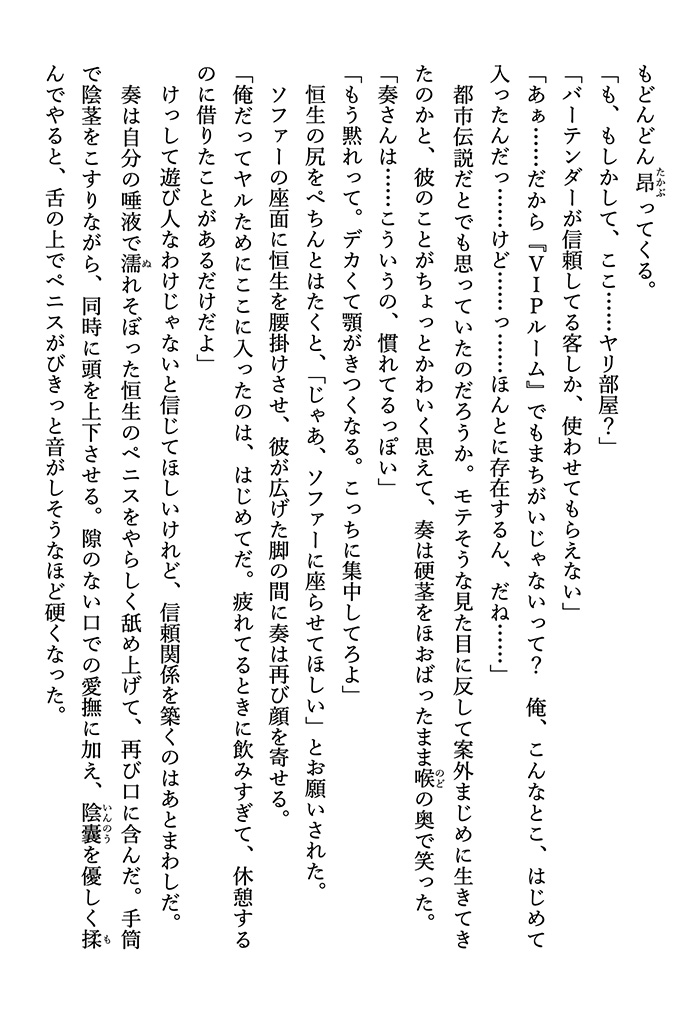 もどんどん昂ってくる。
「も、もしかして、ここ……ヤリ部屋？」
「バーテンダーが信頼してる客しか、使わせてもらえない」
「あぁ……だから『ＶＩＰルーム』でもまちがいじゃないって？　俺、こんなとこ、はじめて
入ったんだっ……けど……っ……ほんとに存在するん、だね……」
都市伝説だとでも思っていたのだろうか。モテそうな見た目に反して案外まじめに生きてき
たのかと、彼のことがちょっとかわいく思えて、奏は硬茎をほおばったまま喉の奥で笑った。
「奏さんは……こういうの、慣れてるっぽい」
「もう黙れって。デカくて顎がきつくなる。こっちに集中してろよ」
恒生の尻をぺちんとはたくと、「じゃあ、ソファーに座らせてほしい」とお願いされた。
ソファーの座面に恒生を腰掛けさせ、彼が広げた脚の間に奏は再び顔を寄せる。
「俺だってヤルためにここに入ったのは、はじめてだ。疲れてるときに飲みすぎて、休憩する
のに借りたことがあるだけだよ」
けっして遊び人なわけじゃないと信じてほしいけれど、信頼関係を築くのはあとまわしだ。
奏は自分の唾液で濡れそぼった恒生のペニスをやらしく舐め上げて、再び口に含んだ。手筒
で陰茎をこすりながら、同時に頭を上下させる。隙のない口での愛撫に加え、陰嚢を優しく揉
んでやると、舌の上でペニスがびきっと音がしそうなほど硬くなった。